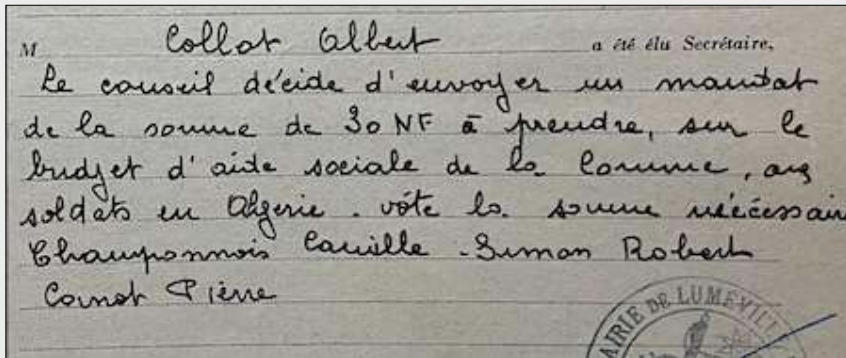 M Collot Albert a été élu Secrétaire.
Le conseil décide d'envoyer un mandat
de la somme de 30 NF à prendre, sur le
budget d'aide sociale de la Comune, aux
soldats en Algerie. vote la somme nécéssair
Champonnois Camille - Simon Robert
Cornot Pierre
MAIRIE DE LUMEVILL